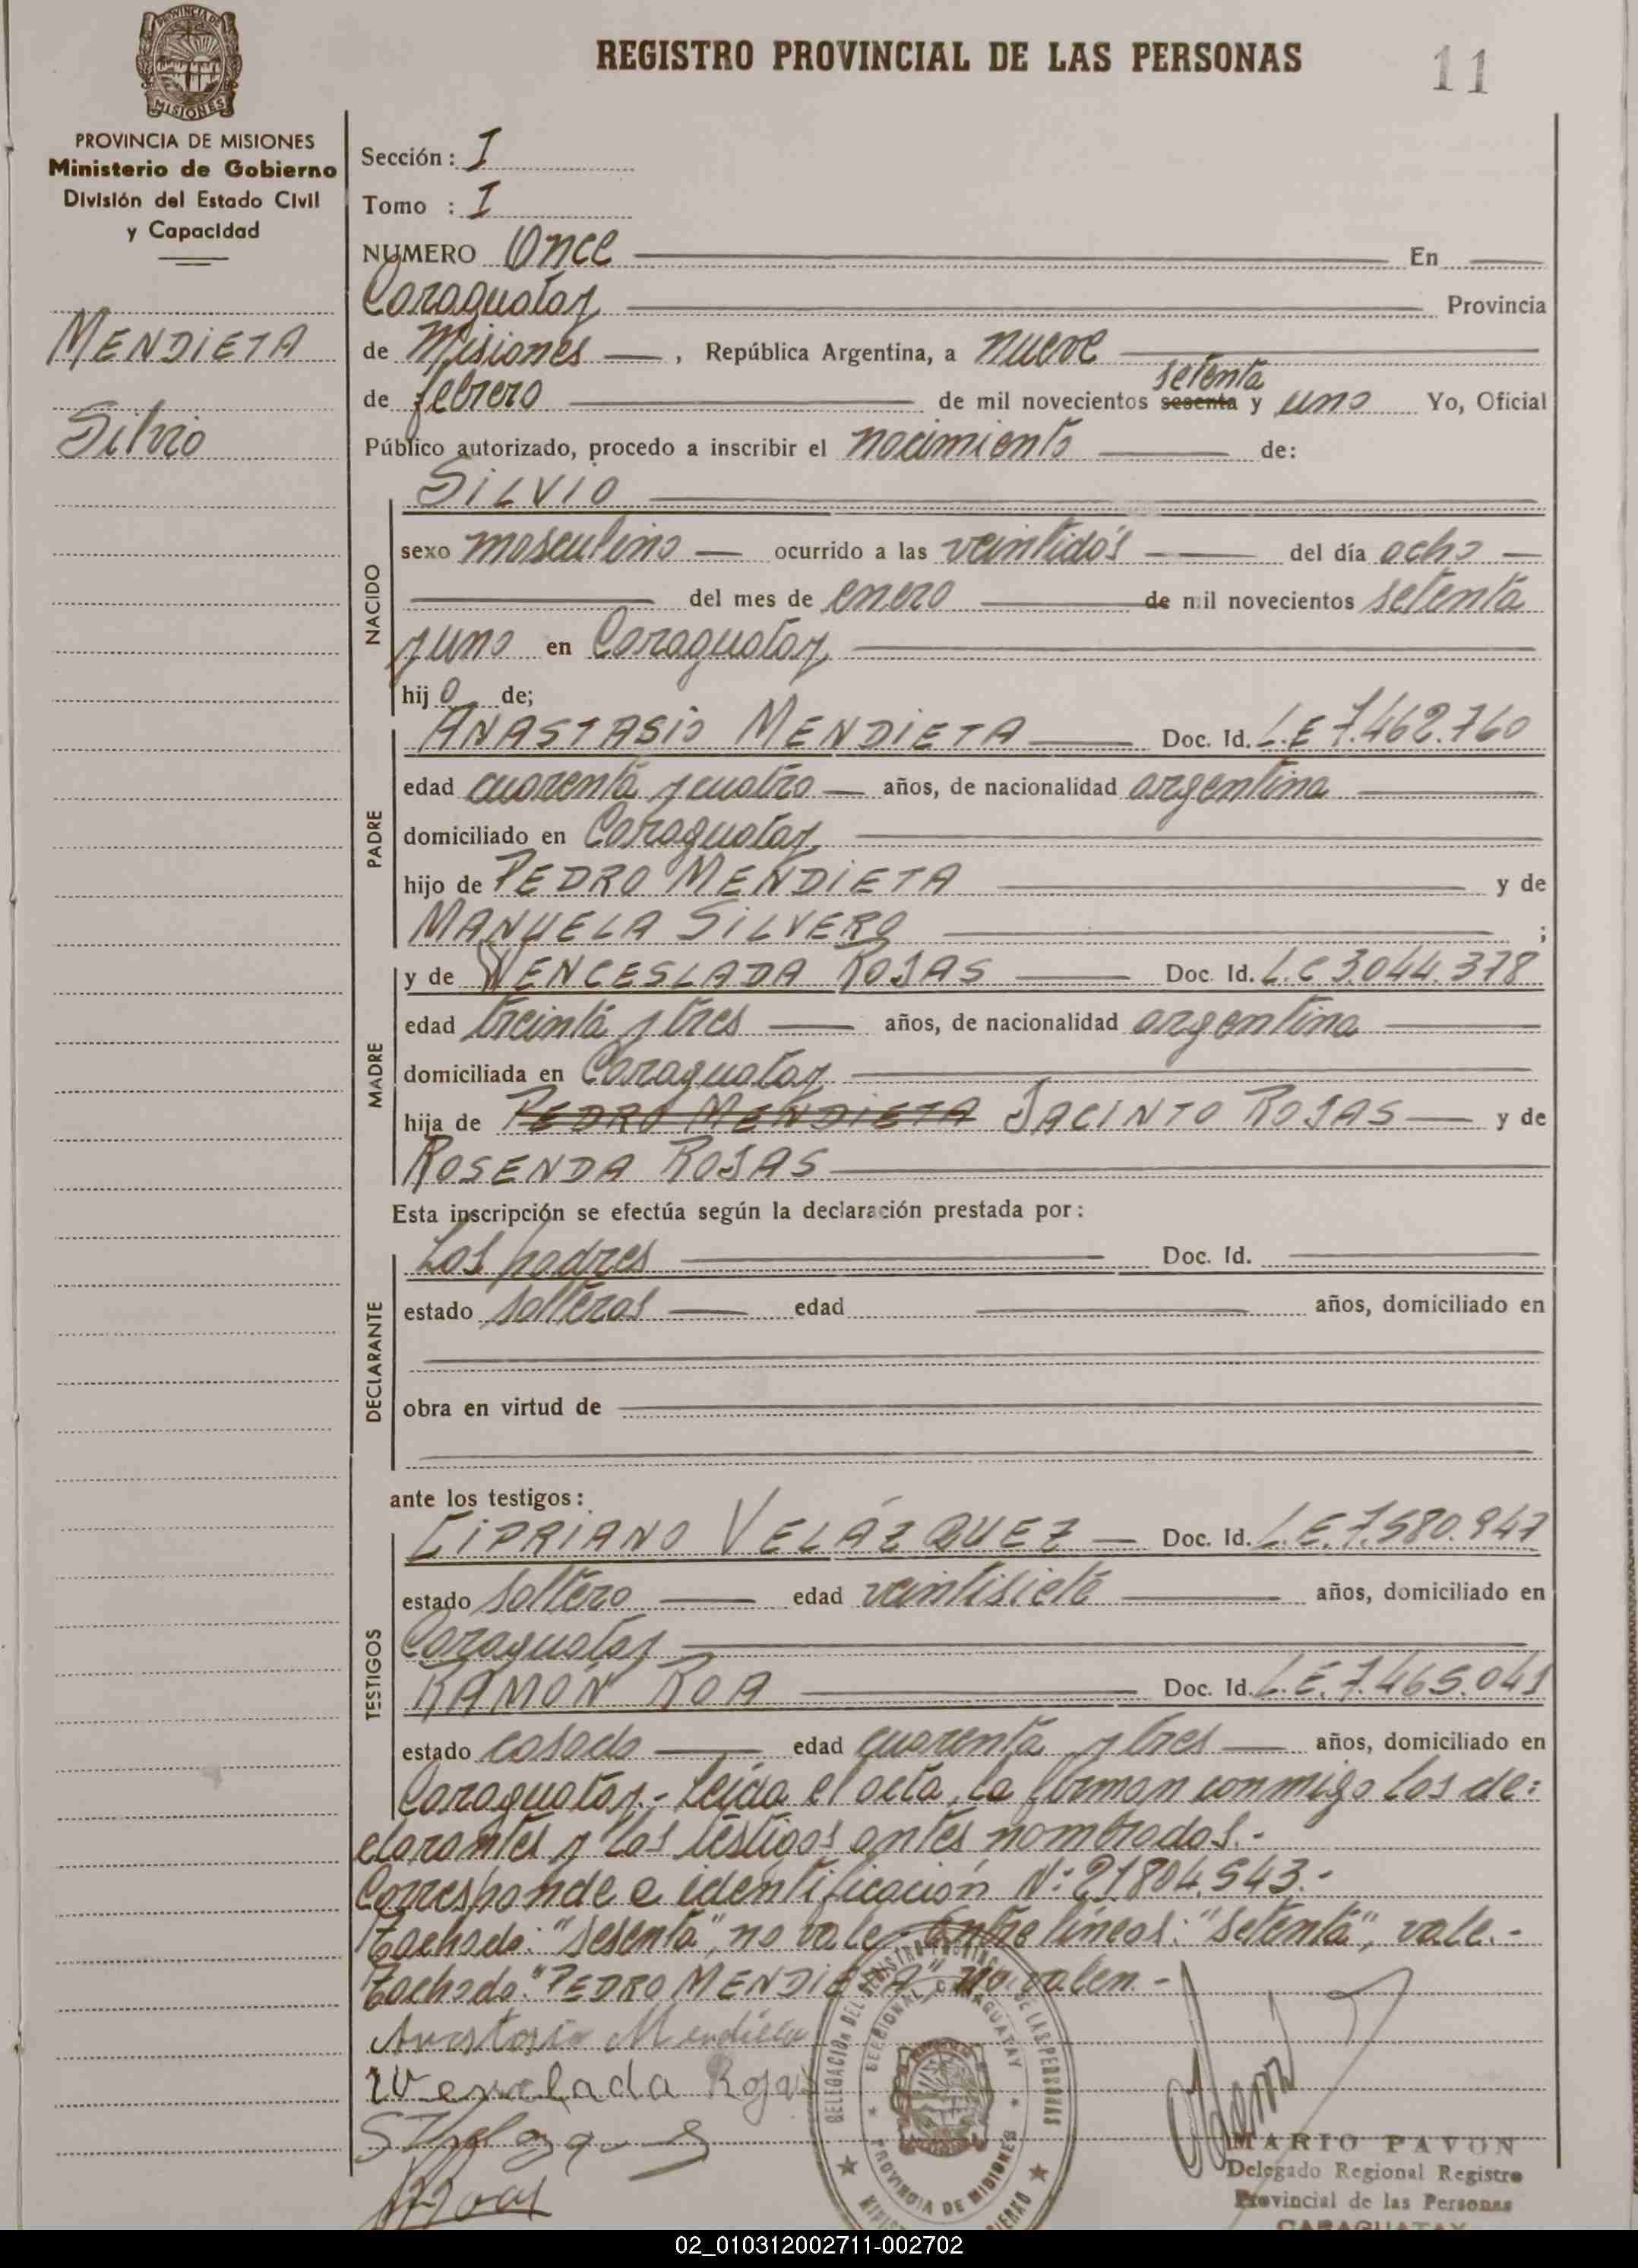 PROVINCIA DE MISIONES
REGISTRO PROVINCIAL DE LAS PERSONAS
11
PROVINCIA DE MISIONES
Ministerio de Gobierno
División del Estado Civil
y Capacidad
MENDIETA
Silvio
Sección: I
Tomo : I
NUMERO Once En
Caraguatay Provincia
de Misiones, República Argentina, a nueve
setenta
de febrero de mil novecientos sesenta y uno Yo, Oficial
Público autorizado, procedo a inscribir el nacimiento de:
NACIDO
SILVIO
sexo masculino ocurrido a las veintidós del día ocho
del mes de enero de mil novecientos setenta
y uno en Caraguatay
hijo de;
PADRE
ANASTASIO MENDIETA Doc. Id. L.E 7.462.760
edad cuarenta y cuatro años, de nacionalidad argentina
domiciliado en Caraguatay
hijo de PEDRO MENDIETA y de
MANUELA SILVERO ;
MADRE
y de WENCESLADA ROJAS Doc. Id. L.C 3.044.378
edad treinta y tres años, de nacionalidad argentina
domiciliada en Caraguatay
hija de PEDRO MENDIETA JACINTO ROJAS y de
ROSENDA ROJAS
Esta inscripción se efectúa según la declaración prestada por:
DECLARANTE
Los padres Doc. Id.
estado solteros edad años, domiciliado en
obra en virtud de
ante los testigos:
TESTIGOS
CIPRIANO VELÁZQUEZ Doc. Id. L.E. 7.580.947
estado soltero edad veintisiete años, domiciliado en
Caraguatay
RAMÓN ROA Doc. Id. L.E. 7.465.041
estado casado edad cuarenta y tres años, domiciliado en
Caraguatay.- Leída el acta, la firman conmigo los de=
clarantes y los testigos antes nombrados.-
Corresponde a identificación Nº 21804.543.-
Tachado: "sesenta", no vale. Entre líneas: "setenta", vale.-
Tachado: "PEDRO MENDIETA", no valen.-
Anastasio Mendieta
Wenselada Rojas
DELEGACION DEL REGISTRO PROVINCIAL DE LAS PERSONAS
SECCIONAL CARAGUATAY
PROVINCIA DE MISIONES
MARIO PAVON
Delegado Regional Registro
Provincial de las Personas
CARAGUATAY
02_010312002711-002702